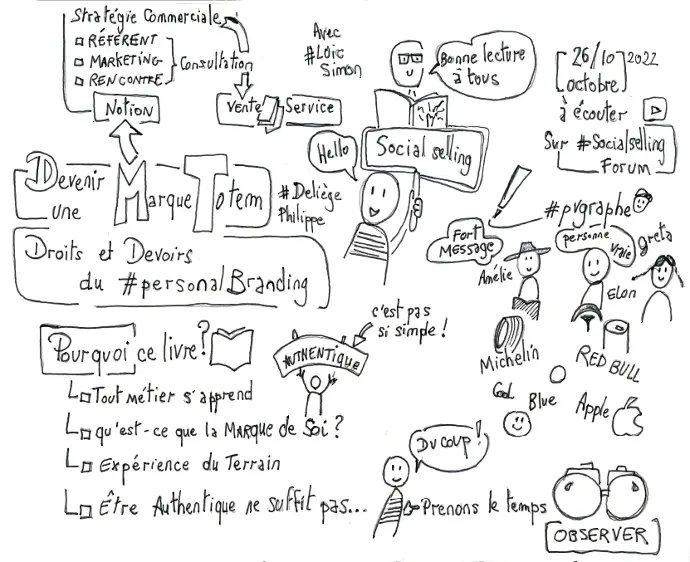 Stratégie Commerciale
RÉFÉRENT
MARKETING
RENCONTRE
Consultation
NOTION
VENTE Service
Avec
#Loïc
Simon
Bonne lecture
à tous
26/10 2022
octobre
à écouter
Sur #Socialselling
Forum
Hello
Social selling
Devenir
une
Marque Totem
#Deliège
Philippe
Droits et Devoirs
du #personalBranding
#pvgraphe
FORT
MESSAGE
personne
vraie
greta
Amélie
ELON
c'est pas
si simple !
Pourquoi ce livre ?
AUTHENTIQUE
Tout métier s'apprend
qu'est-ce que la MARQUE de Soi ?
Expérience du Terrain
Être Authentique ne suffit pas...
Michelin
RED BULL
Cool
Blue
Apple
DU COUP !
Prenons le temps
OBSERVER